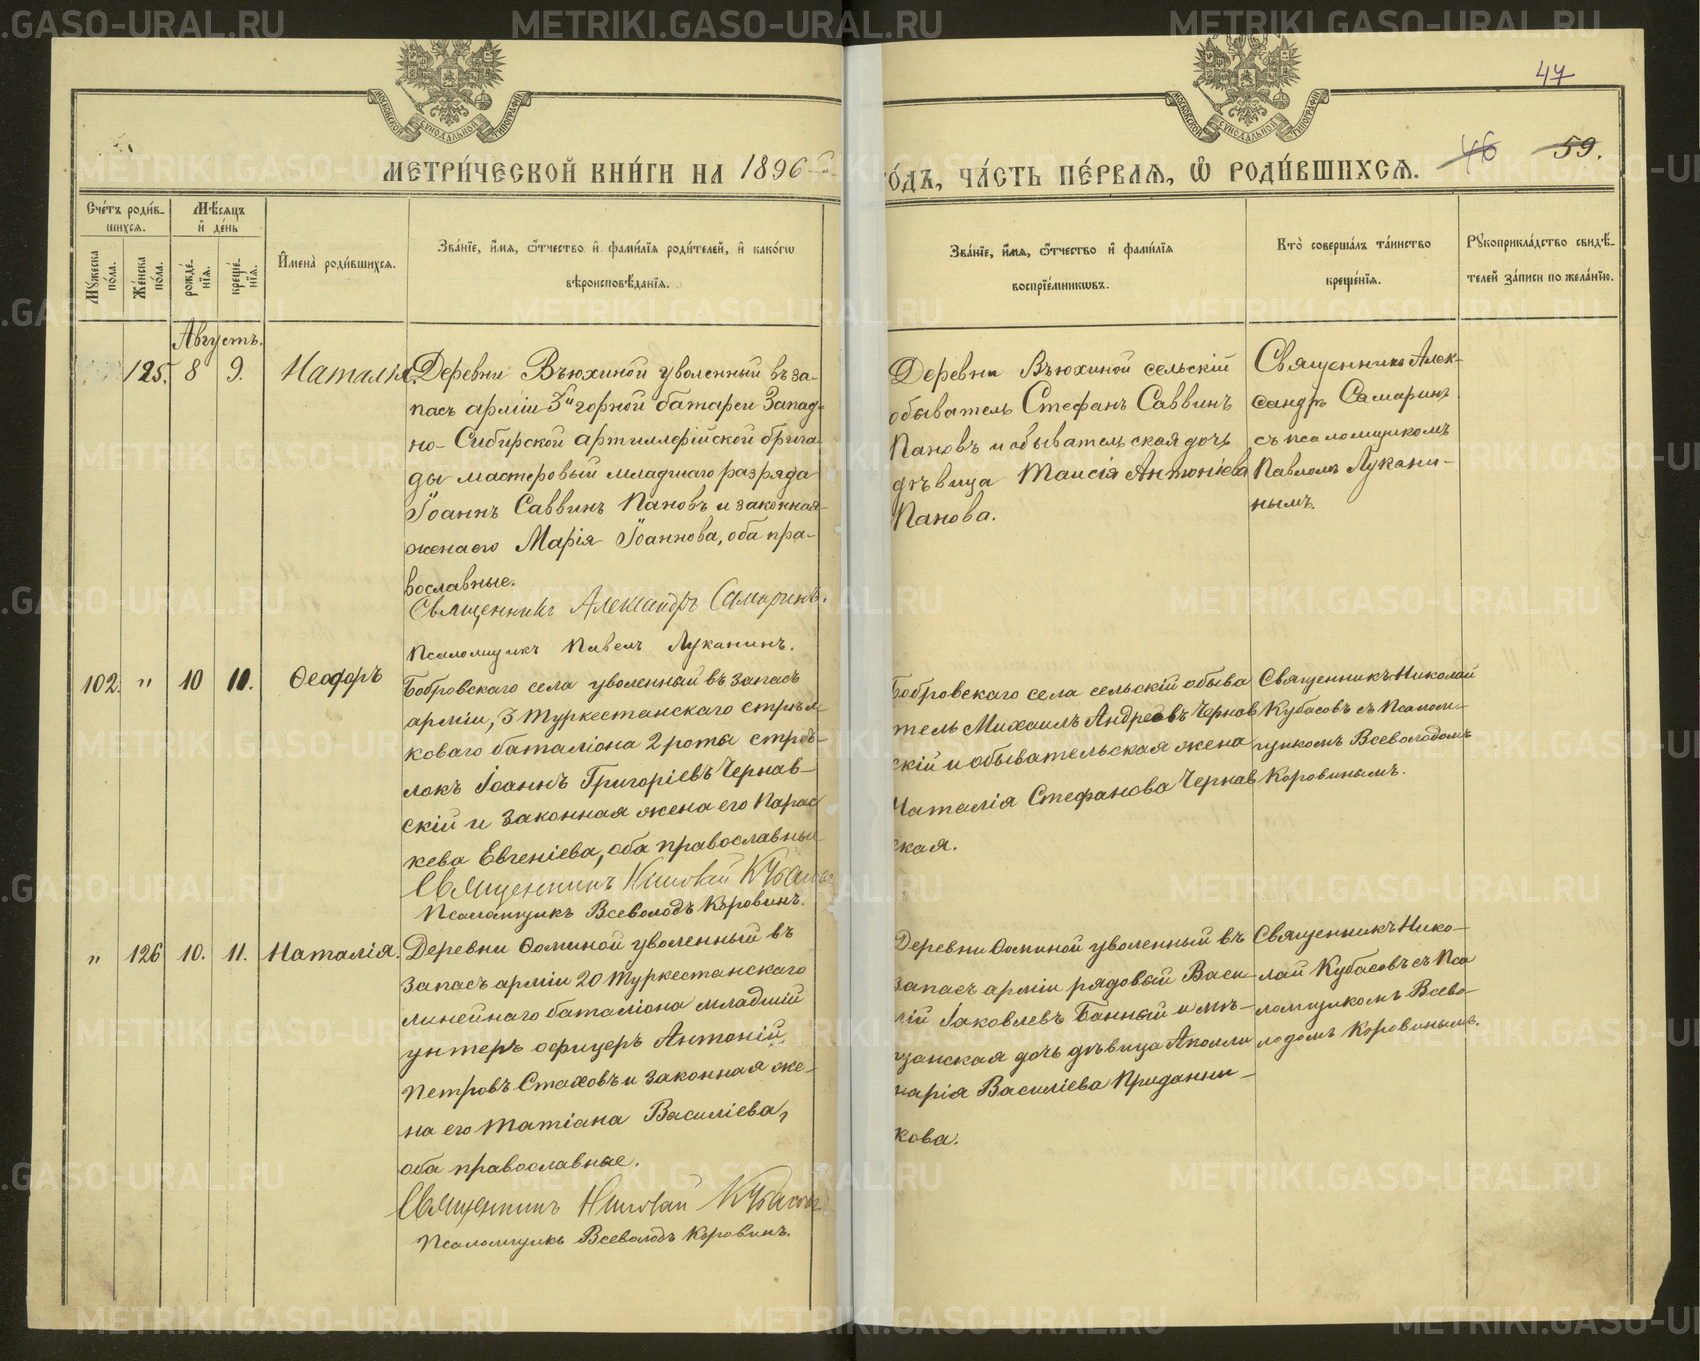 47
МОСКОВСКОЙ СѴНОДАЛЬНОЙ ТИПОГРАФІИ
МОСКОВСКОЙ СѴНОДАЛЬНОЙ ТИПОГРАФІИ
МЕТРИ́ЧЕСКОЙ КНИ́ГИ НА 1896
ГО́ДЪ, ЧА́СТЬ ПЕ́РВАѦ, Ѡ РОДИ́ВШИХСѦ.
46 59.
Сче́тъ роди́в-
шихсѧ.
Мѹ́жеска по́ла.
Же́нска по́ла.
Мѣ́сѧцъ
и҆ де́нь
рожде́-
нїѧ.
креще́-
нїѧ.
И҆мена̀ роди́вшихсѧ.
Зва́нїе, и҆́мѧ, ѻ҆́тчество и҆ фами́лїѧ роди́телей, и҆ како́гѡ
вѣроисповѣ́данїѧ.
Зва́нїе, и҆́мѧ, ѻ҆́тчество и҆ фами́лїѧ
воспрїе́мникѡвъ.
Кто̀ соверша́лъ та́инство
креще́нїѧ.
Рꙋкоприкла́дство свидѣ́-
телей за́писи по жела́нїю.
Августъ.
125. 8 9. Наталія.
Деревни Вьюхиной уволенный въ за-
пасъ арміи 3й горной батареи Запад-
но-Сибирской артиллерійской брига-
ды мастеровый младшаго разряда
Іоаннъ Саввинъ Пановъ и законная
жена его Марія Іоаннова, оба пра-
вославные.
Священникъ Александръ Самаринъ.
Псаломщикъ Павелъ Луканинъ.
Деревни Вьюхиной сельскій
обыватель Стефанъ Саввинъ
Пановъ и обывательская дочь
дѣвица Таисія Антоніева
Панова.
Священникъ Алек-
сандръ Самаринъ
съ псаломщикомъ
Павломъ Лукани-
нымъ.
102. " 10 11. Ѳеодоръ
Бобровскаго села уволенный въ запасъ
арміи, 3 Туркестанскаго стрѣл-
коваго баталіона 2 роты стрѣ-
локъ Іоаннъ Григоріевъ Чернав-
скій и законная жена его Парас
кева Евгеніева, оба православные
Священникъ Николай Кубасовъ
Псаломщикъ Всеволодъ Коровинъ.
Бобровскаго села сельскій обыва
тель Михаилъ Андреевъ Чернав
скій и обывательская жена
Наталія Стефанова Чернав
ская.
Священникъ Николай
Кубасовъ съ Псалом-
щикомъ Всеволодомъ
Коровинымъ.
" 126 10. 11. Наталія.
Деревни Ѳоминой уволенный въ
запасъ арміи 20 Туркестанскаго
линейнаго баталіона младшій
унтеръ офицеръ Антоній
Петровъ Стаховъ и законная же-
на его Татіана Василіева,
оба православные.
Священникъ Николай Кубасовъ
Псаломщикъ Всеволодъ Коровинъ.
Деревни Ѳоминой уволенный въ
запасъ арміи рядовый Васи
лій Іаковлевъ Банный и мѣ-
щанская дочь дѣвица Аполли
нарія Василіева Приданни-
кова.
Священникъ Нико-
лай Кубасовъ съ Пса
ломщикомъ Всево-
лодомъ Коровинымъ.
METRIKI.GASO-URAL.RU